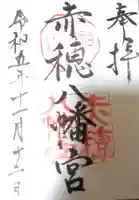 奉拝
赤穂八幡宮
令和五年十一月十二日